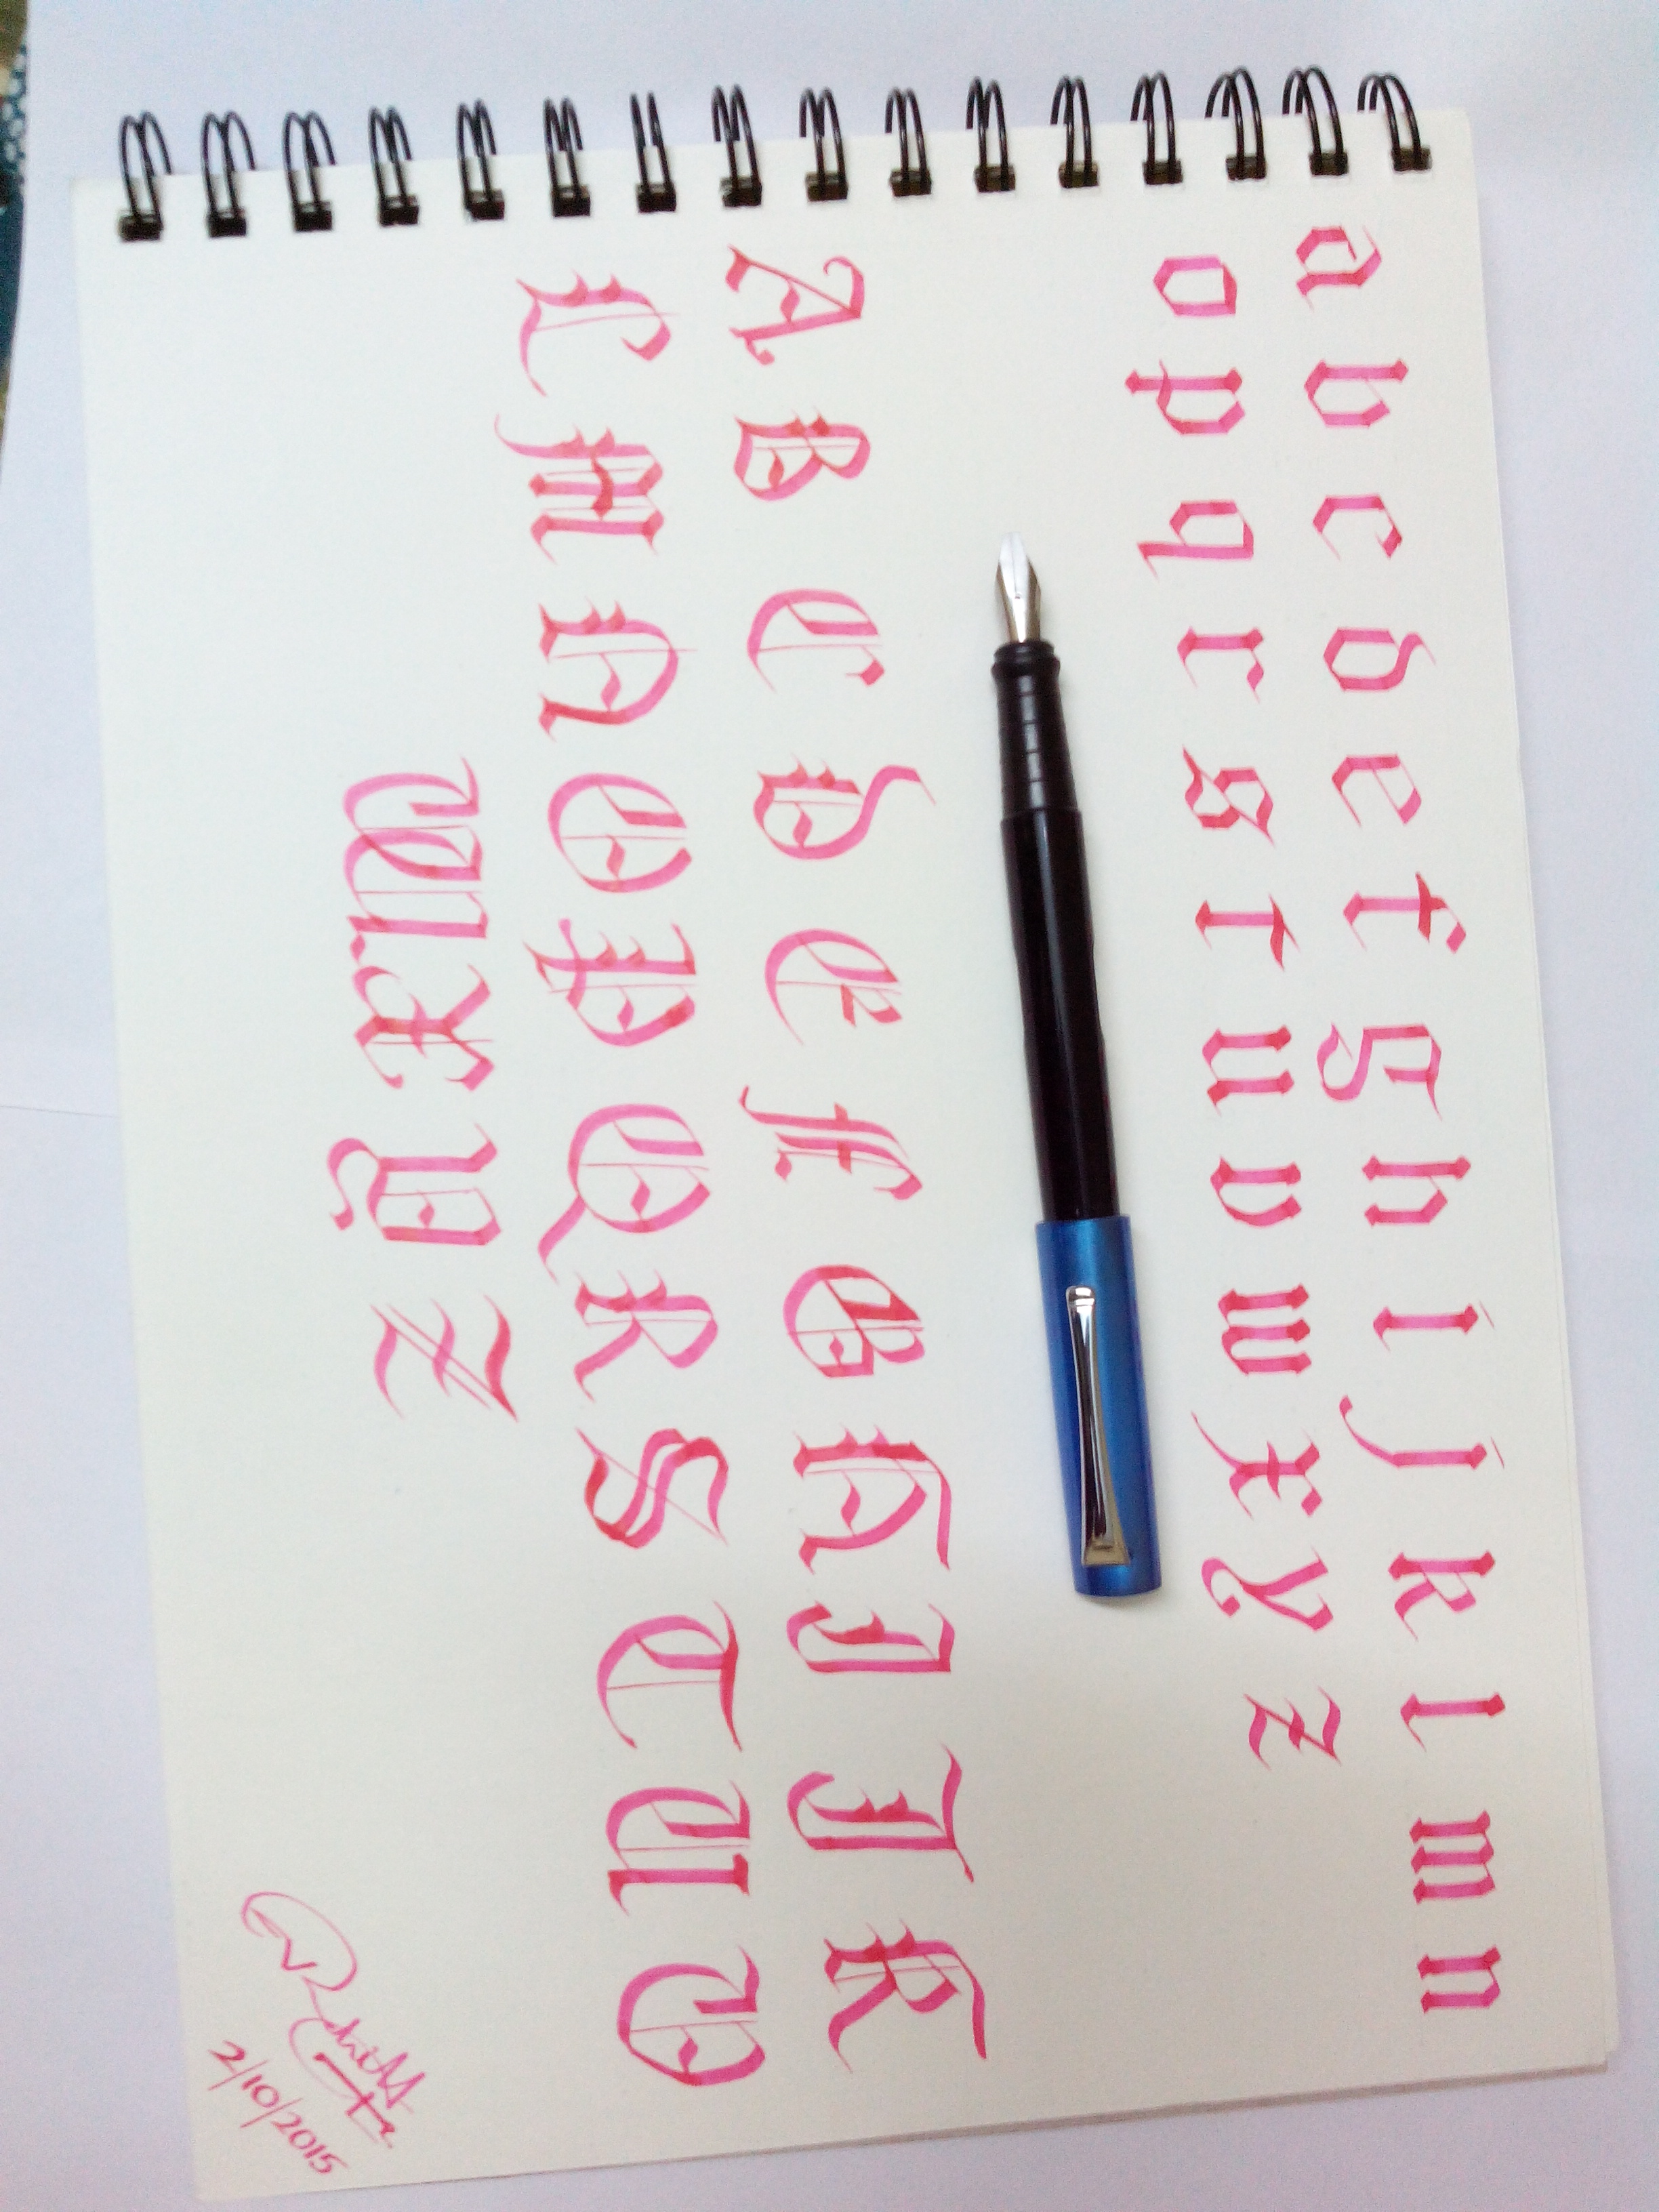 a b c d e f g h i j k l m n
o p q r s t u v w x y z
A B C D E F G H I J K
L M N O P Q R S T U V
W X Y Z
2/10/2015